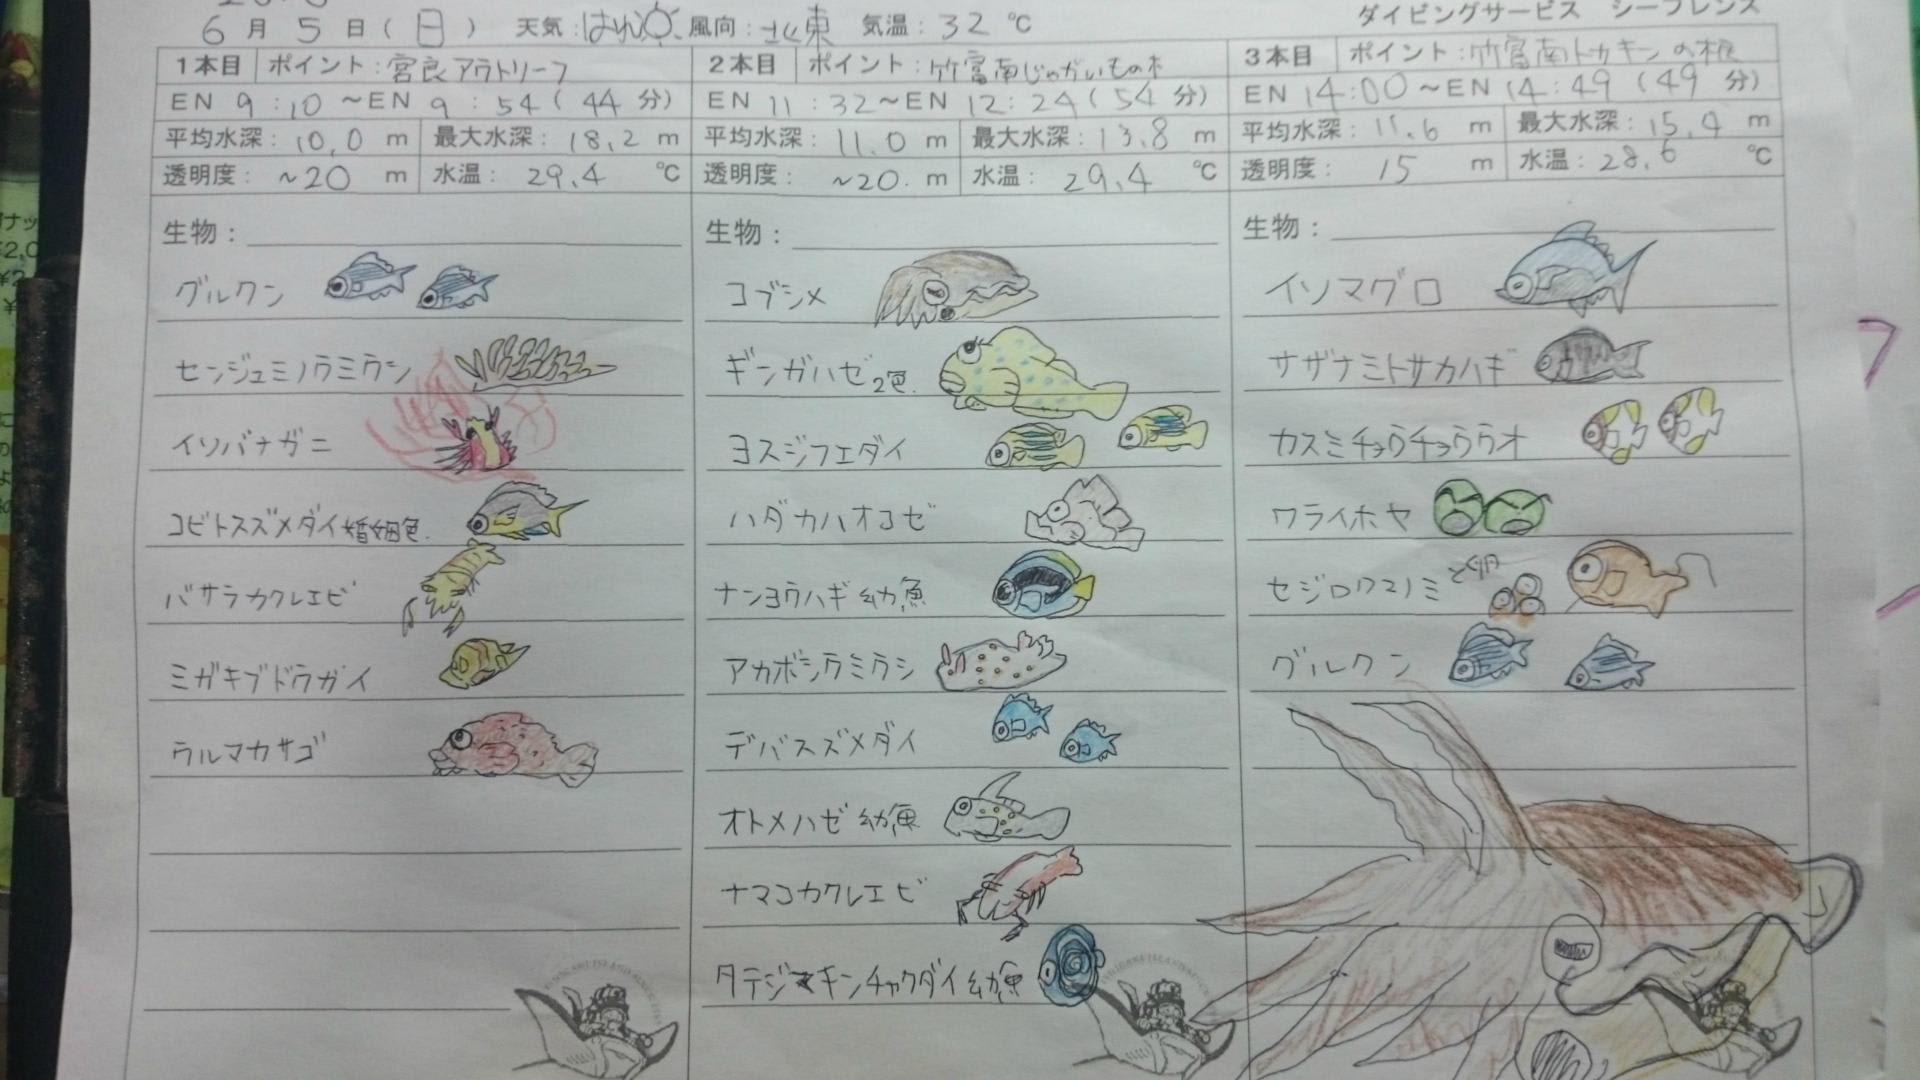 ダイビングサービス シーフレンズ
6月5日(日) 天気:はれ 風向:北東 気温:32℃
1本目 ポイント:宮良アウトリーフ
EN 9:10~EN 9:54(44分)
平均水深:10.0m 最大水深:18.2m
透明度:~20m 水温:29.4℃
生物:
グルクン
センジュミノウミウシ
イソバナガニ
コビトスズメダイ婚姻色.
バサラカクレエビ
ミガキブドウガイ
ウルマカサゴ
2本目 ポイント:竹富南じゃがいもの木
EN 11:32~EN 12:24(54分)
平均水深:11.0m 最大水深:13.8m
透明度:~20.m 水温:29.4℃
生物:
コブシメ
ギンガハゼ2色.
ヨスジフエダイ
ハダカハオコゼ
ナンヨウハギ幼魚
アカボシウミウシ
デバスズメダイ
オトメハゼ幼魚
ナマコカクレエビ
タテジマキンチャクダイ幼魚
3本目 ポイント:竹富南トカキンの根
EN 14:00~EN 14:49(49分)
平均水深:11.6m 最大水深:15.4m
透明度:15m 水温:28.6℃
生物:
イソマグロ
サザナミトサカハギ
カスミチョウチョウウオ
ワライホヤ
セジロクマノミと卵
グルクン